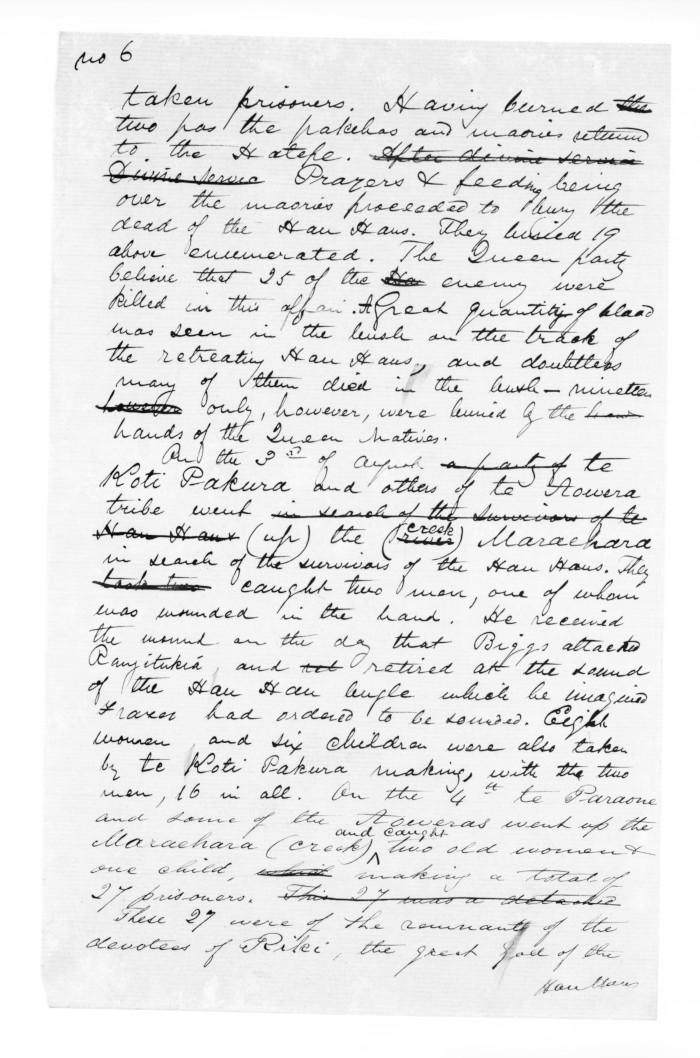 no 6
taken prisoners. Having burned the
two pas the pakehas and maories return
to the Hatepe. After divine service
Divine servic Prayers & feeding being
over the maories proceeded to bury the
dead of the Hau Haus. They buried 19
above enumerated. The Queen party
believe that 25 of the Ha enemy were
killed in this affair. A Great quantity of blood
was seen in the bush on the track of
the retreating Hau Haus, and doubtless
many of them died in the bush – nineteen
however only, however, were buried by the
hands of the Queen Natives.
On the 3rd of August a party of te
Koti Pakura and others of te Aowera
tribe went in search of the survivors of te
Hau Haus (up) the (river creek) Maraehara
in search of the survivors of the Hau Haus. They
took two caught two men, one of whom
was wounded in the hand. He received
the wound on the day that Biggs attacked
Rangitukia, and ret retired at the sound
of the Hau Hau bugle which he imagined
Fraser had ordered to be sounded. Eight
women and six children were also taken
by te Koti Pakura making, with the two
men, 16 in all. On the 4th te Paraone
and some of the Aoweras went up the
Maraehara (creek) and caught two old women &
one child, which making a total of
27 prisoners. This 27 was a detached
These 27 were of the remnants of the
devotees of Riki, the great God of the
Hau Haus